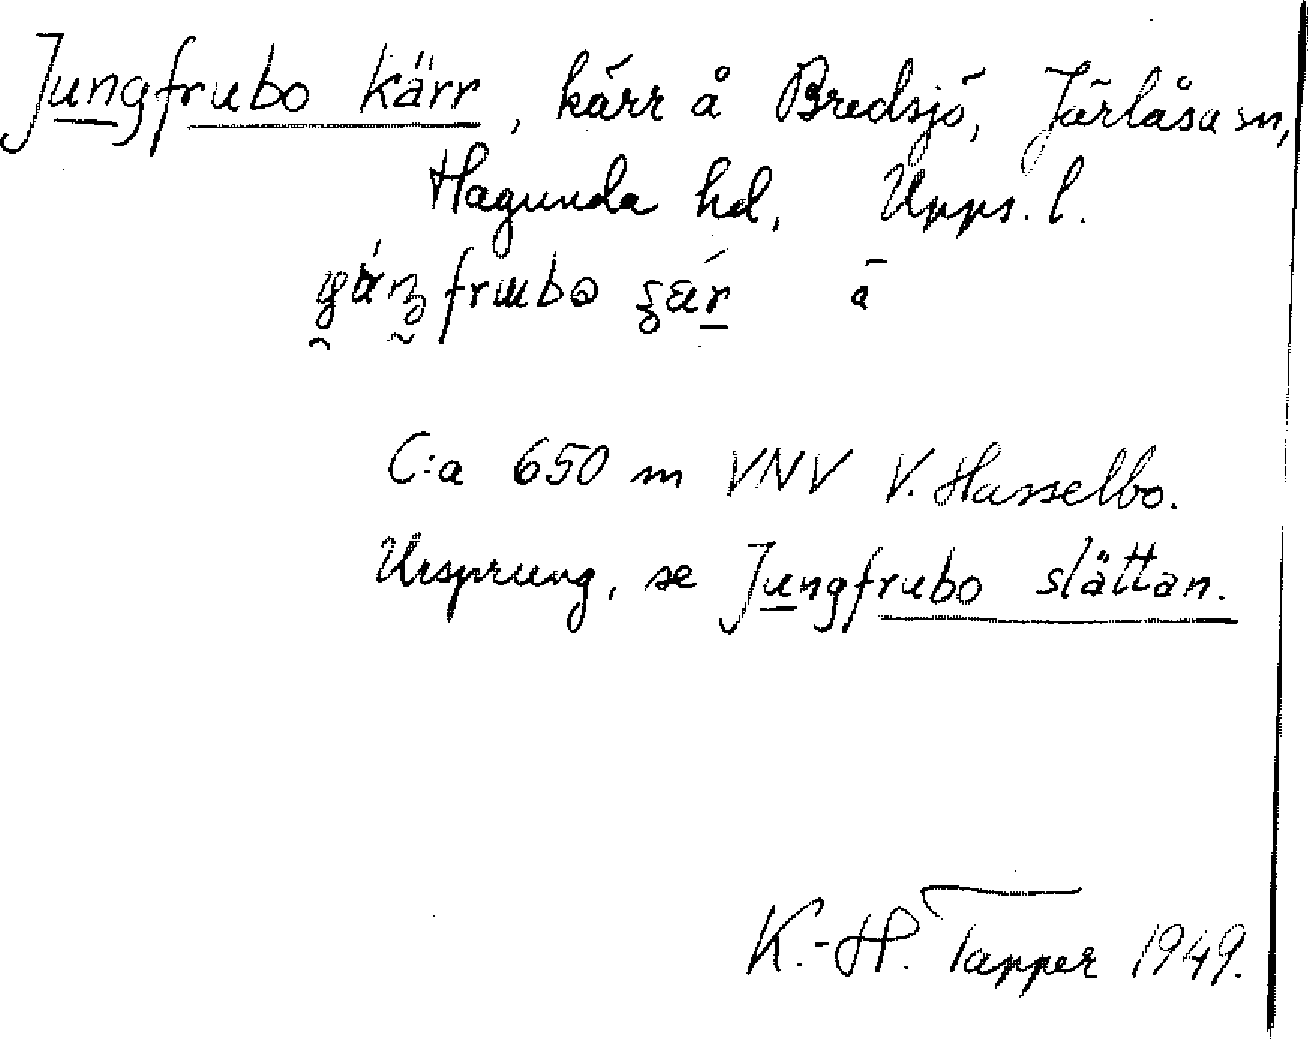 Jungfrubo kärr, kärr å Bredsjö, Järlåsa sn,
Hagunda hd, Upps. l.
å
C:a 650 m VNV V. Hasselbo.
Ursprung, se Jungfrubo slättan.
K.-H. Tapper 1949.